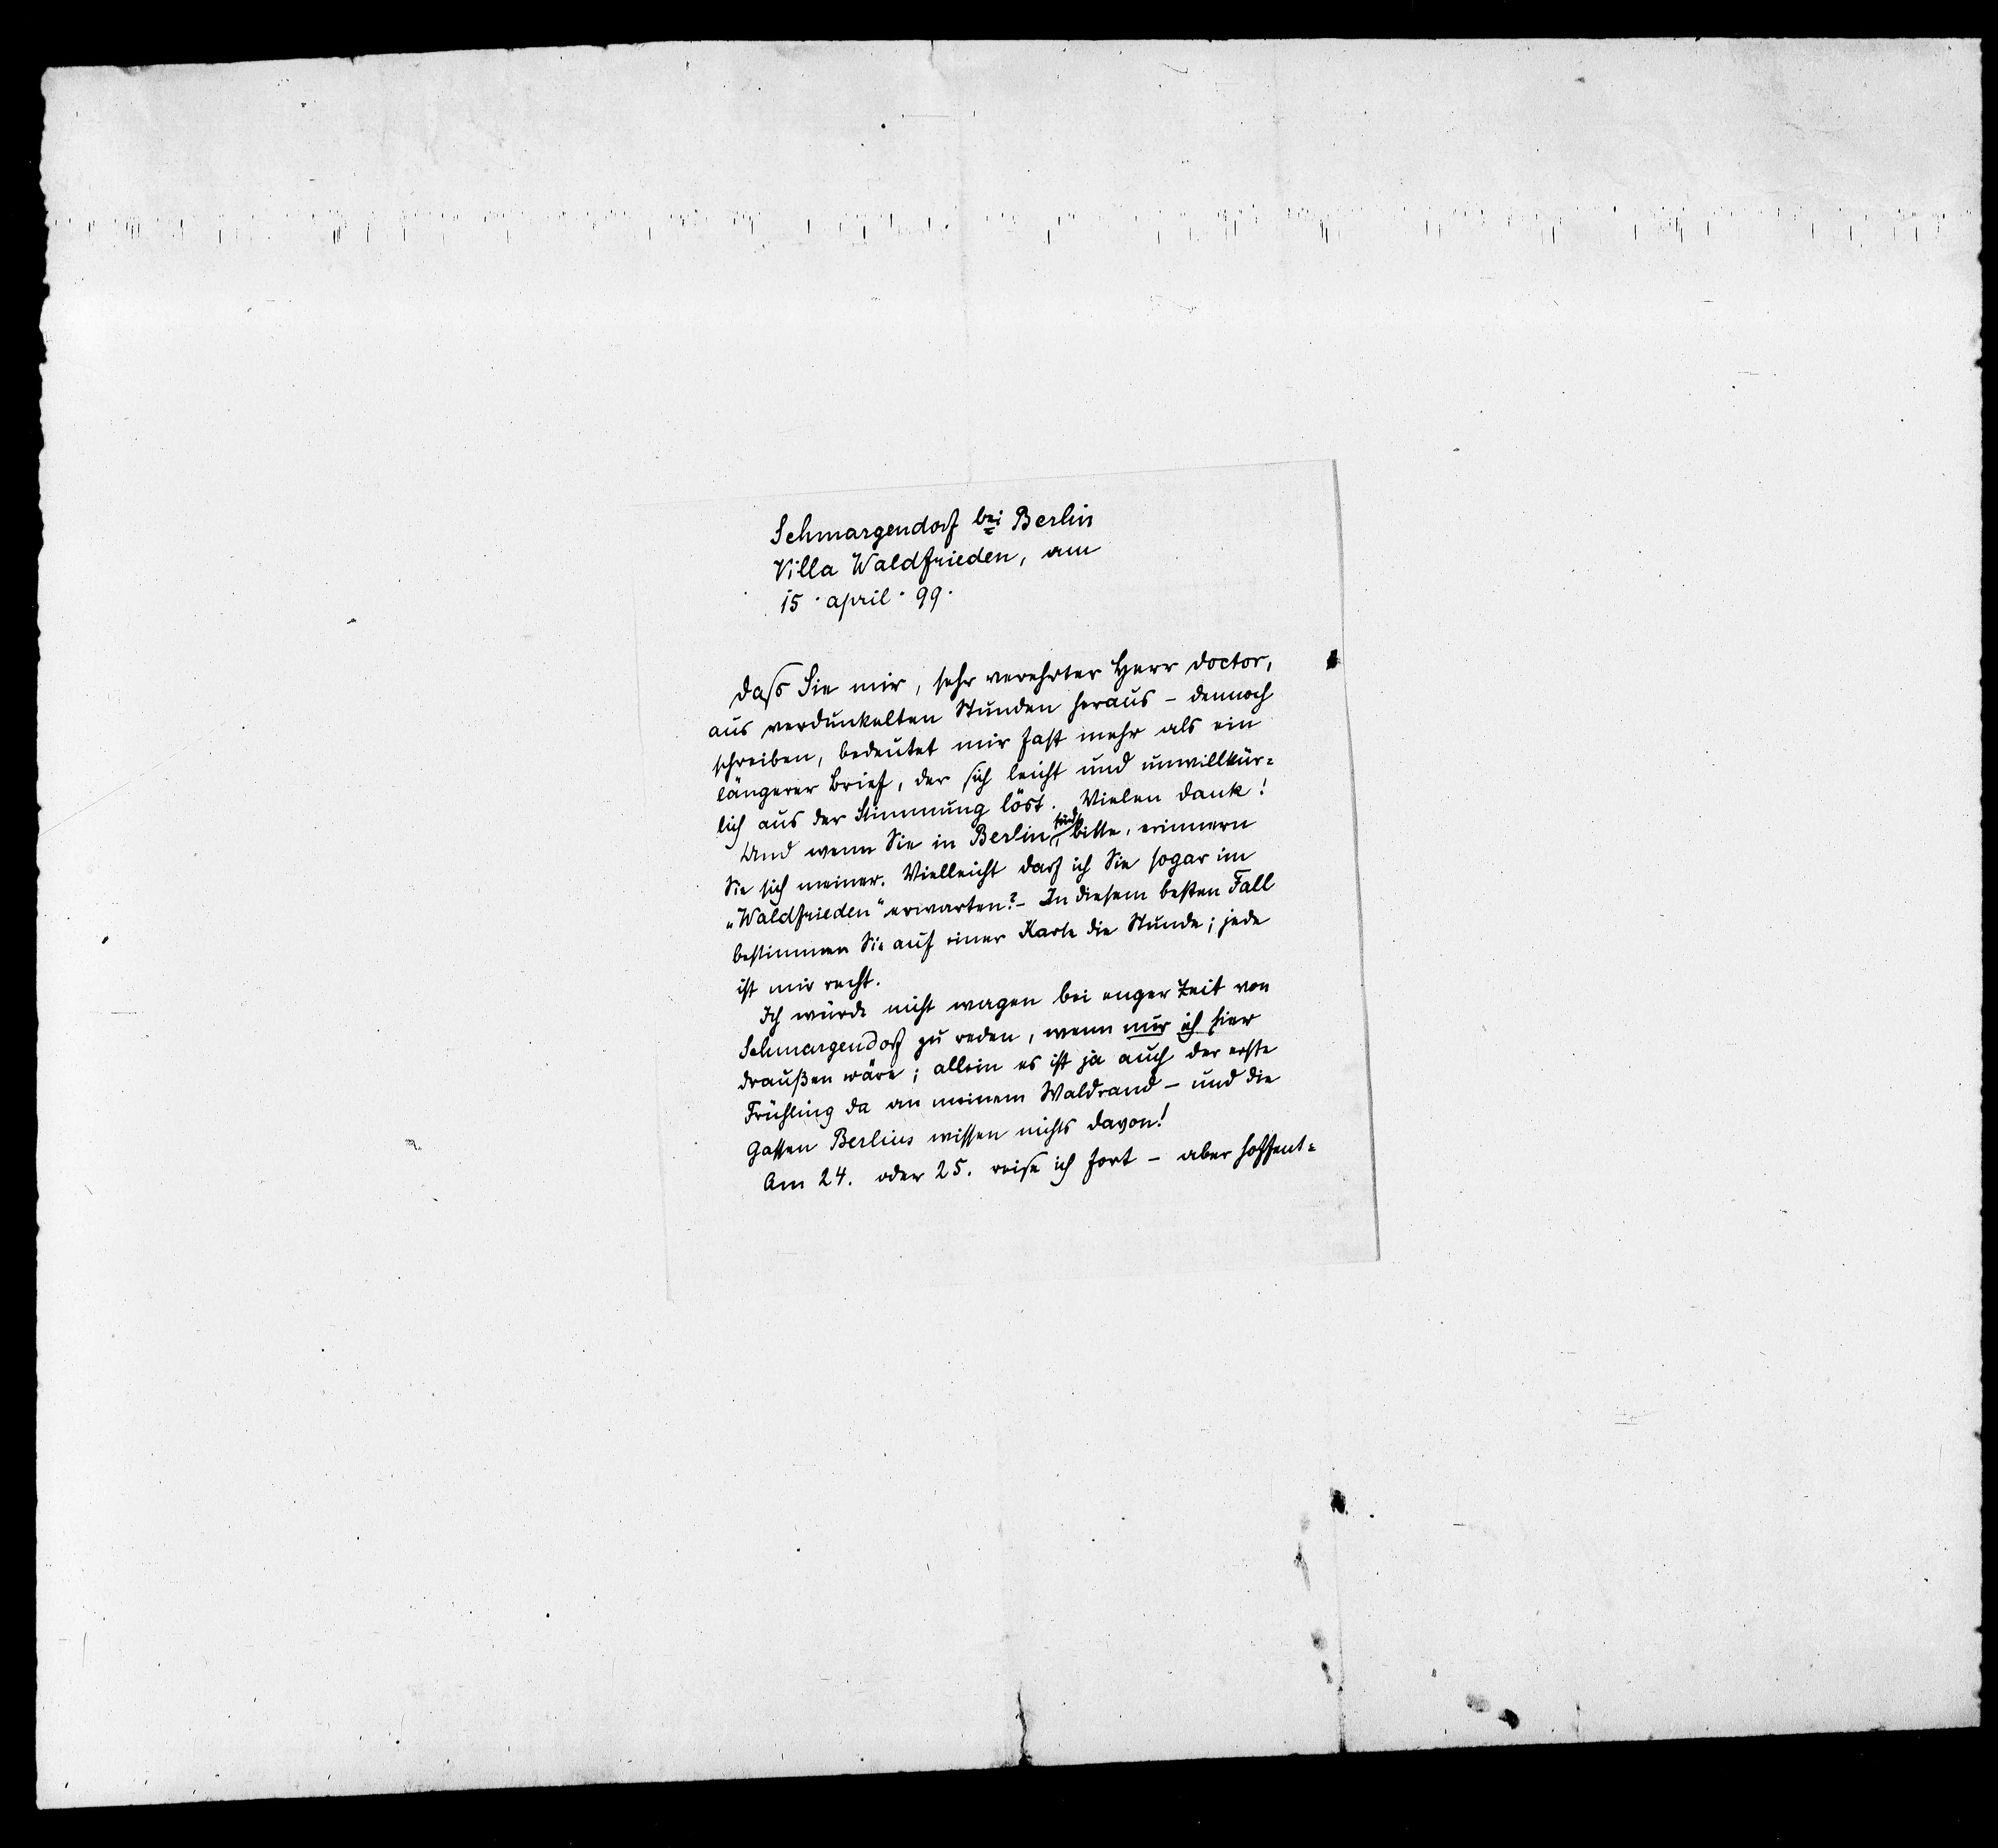 Schmargendorf bei Berlin
Villa Waldfrieden, am
15 · april · 99 ·
Dass Sie mir, sehr verehrter Herr Doctor,
aus verdunkelten Stunden heraus – dennoch
schreiben, bedeutet mir fast mehr als ein
längerer Brief, der sich leicht und unwillkür=
lich aus der Stimmung löst. Vielen Dank!
Und wenn Sie in Berlin sind, bitte, erinnern
Sie sich meiner. Vielleicht darf ich Sie sogar im
„Waldfrieden" erwarten? – In diesem besten Fall
bestimmen Sie auf einer Karte die Stunde; jede
ist mir recht.
Ich würde nicht wagen bei enger Zeit von
Schmargendorf zu reden, wenn nur ich hier
draußen wäre; allein es ist ja auch der erste
Frühling da an meinem Waldrand – und die
Gassen Berlins wissen nichts davon!
Am 24. oder 25. reise ich fort – aber hoffent=